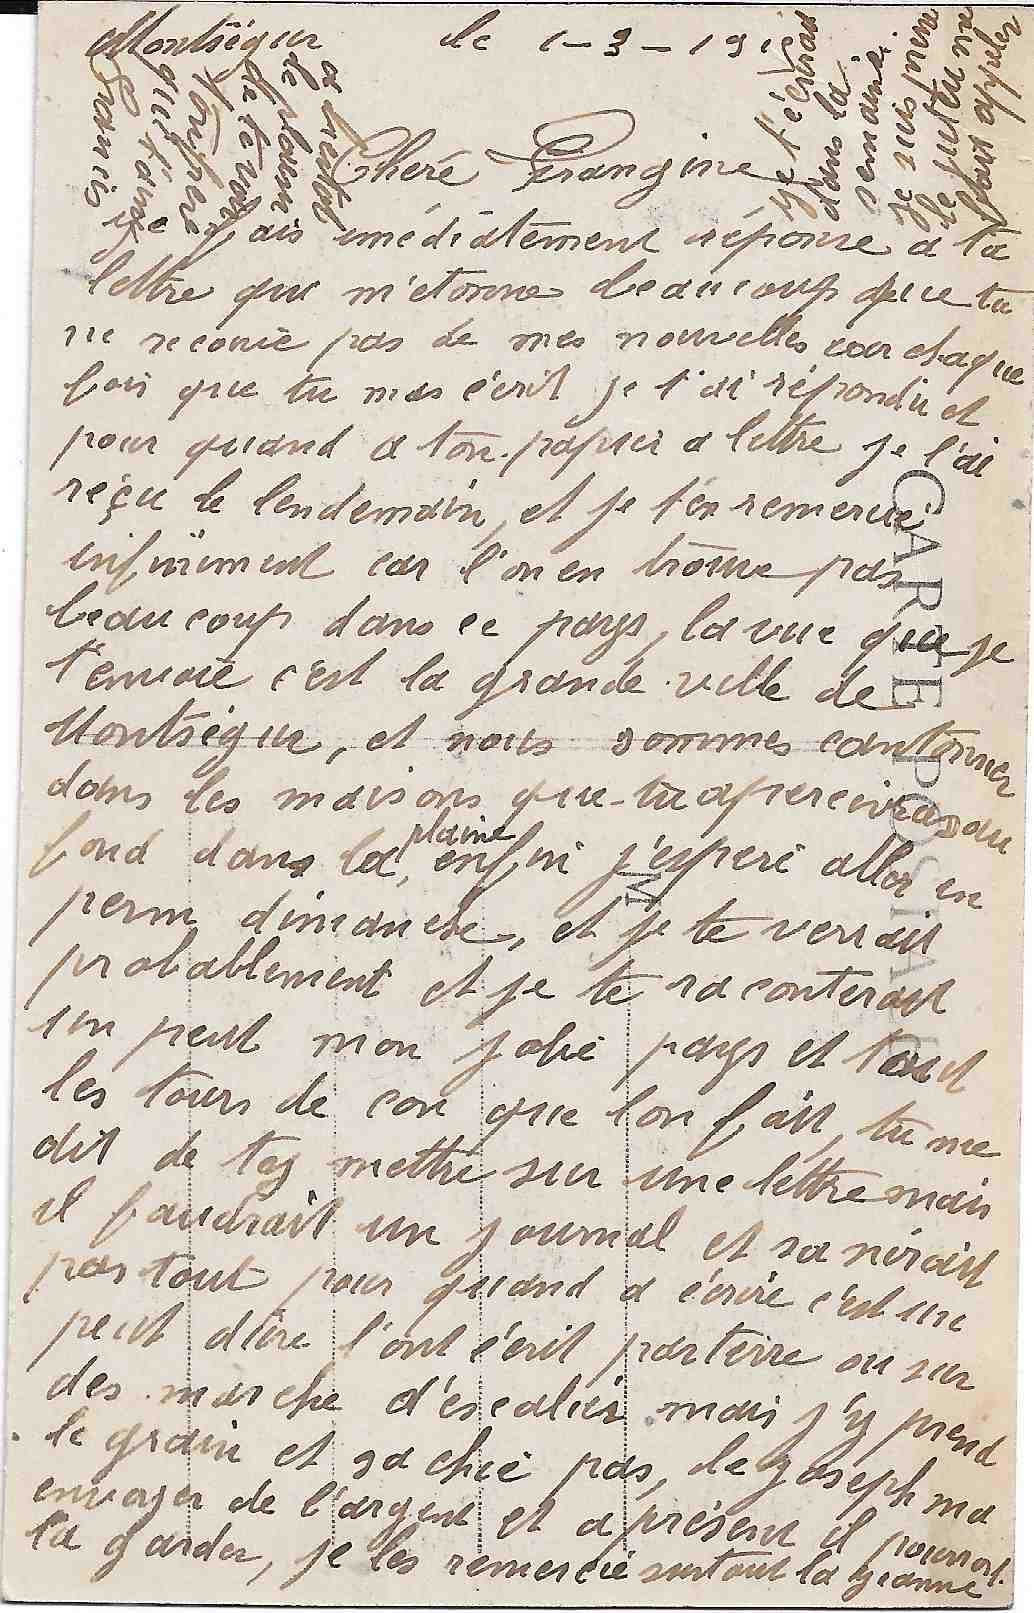 Montségur le 1-3-191
Chère Frangine
Je fais imédiatement réponse a ta
lettre qui m'etonne beaucoup que tu
ne recoue pas de mes nouvelles car chaque
fois que tu mas écrit je t'ai répondu et
pour quand a ton papier a lettre je l'ai
reçu le lendemain, et je t'en remercie
infiniment car l'on en trouve pas
beaucoup dans ce pays, la vue que je
t'envoie c'est la grande ville de
Montségur, et nous sommes cantonner
dans les maisons que tu apercevras au
fond dans la plaine, enfin j'espère aller en
perm dimanche, et je te verrait
probablement et je te raconterait
un peut mon jolie pays et tout
les tours de con que l'on fait, tu me
dit de toy mettre sur une lettre mais
il faudrait un journal et sa
pas tout pour quand a écrire c'est un
peut dire l'ont écrit parterre ou sur
des marche d'escalier mais j'y prend
le grain et sa chie pas, le Joseph ma
envoyer de l'argent et a présent il pourront
la garder, je les remercie surtout la
a bientot
le plaisir
de te voir
Ton frère
qui t'aime
Francis
Je t'écrirai
dans la
semaine
je suis
le
faut appeler
CARTE POSTALE
M